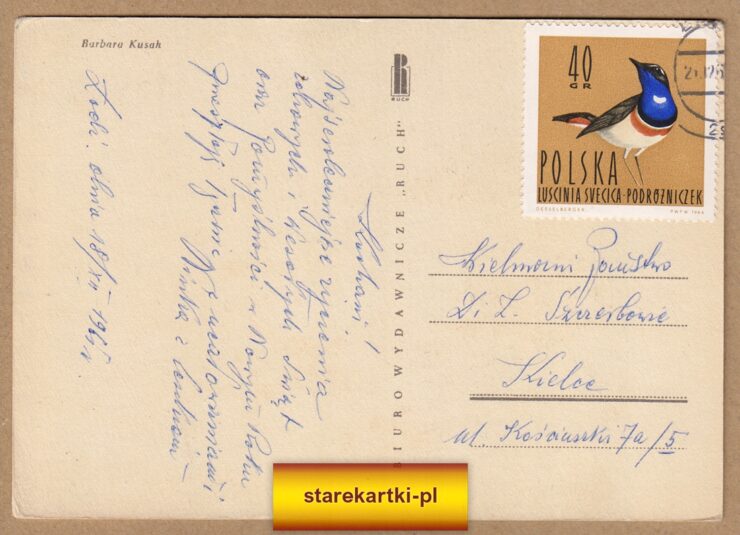 Barbara Kusah
Łódź, dnia 18/XII 1965 r.
Kochani!
Najserdeczniejsze życzenia
zdrowych i wesołych Świąt
oraz Pomyślności w Nowym Roku
przesyłają
z ucałowaniami,
RUCH
BIURO WYDAWNICZE „RUCH"
40
GR
POLSKA
LUSCINIA SVECICA · PODRÓŻNICZEK
DESSELBERGER
PWPW 1966
Wielmożni Państwo
Szczerbowie
Kielce
ul. Kościuszki 7a/5
starekartki-pl